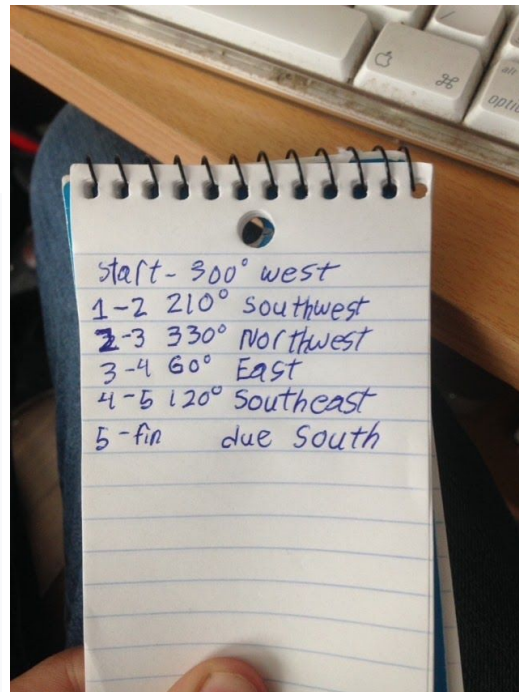 ⌘
alt
start - 300° west
1-2 210° Southwest
2-3 330° Northwest
3-4 60° East
4-5 120° Southeast
5-fin due South